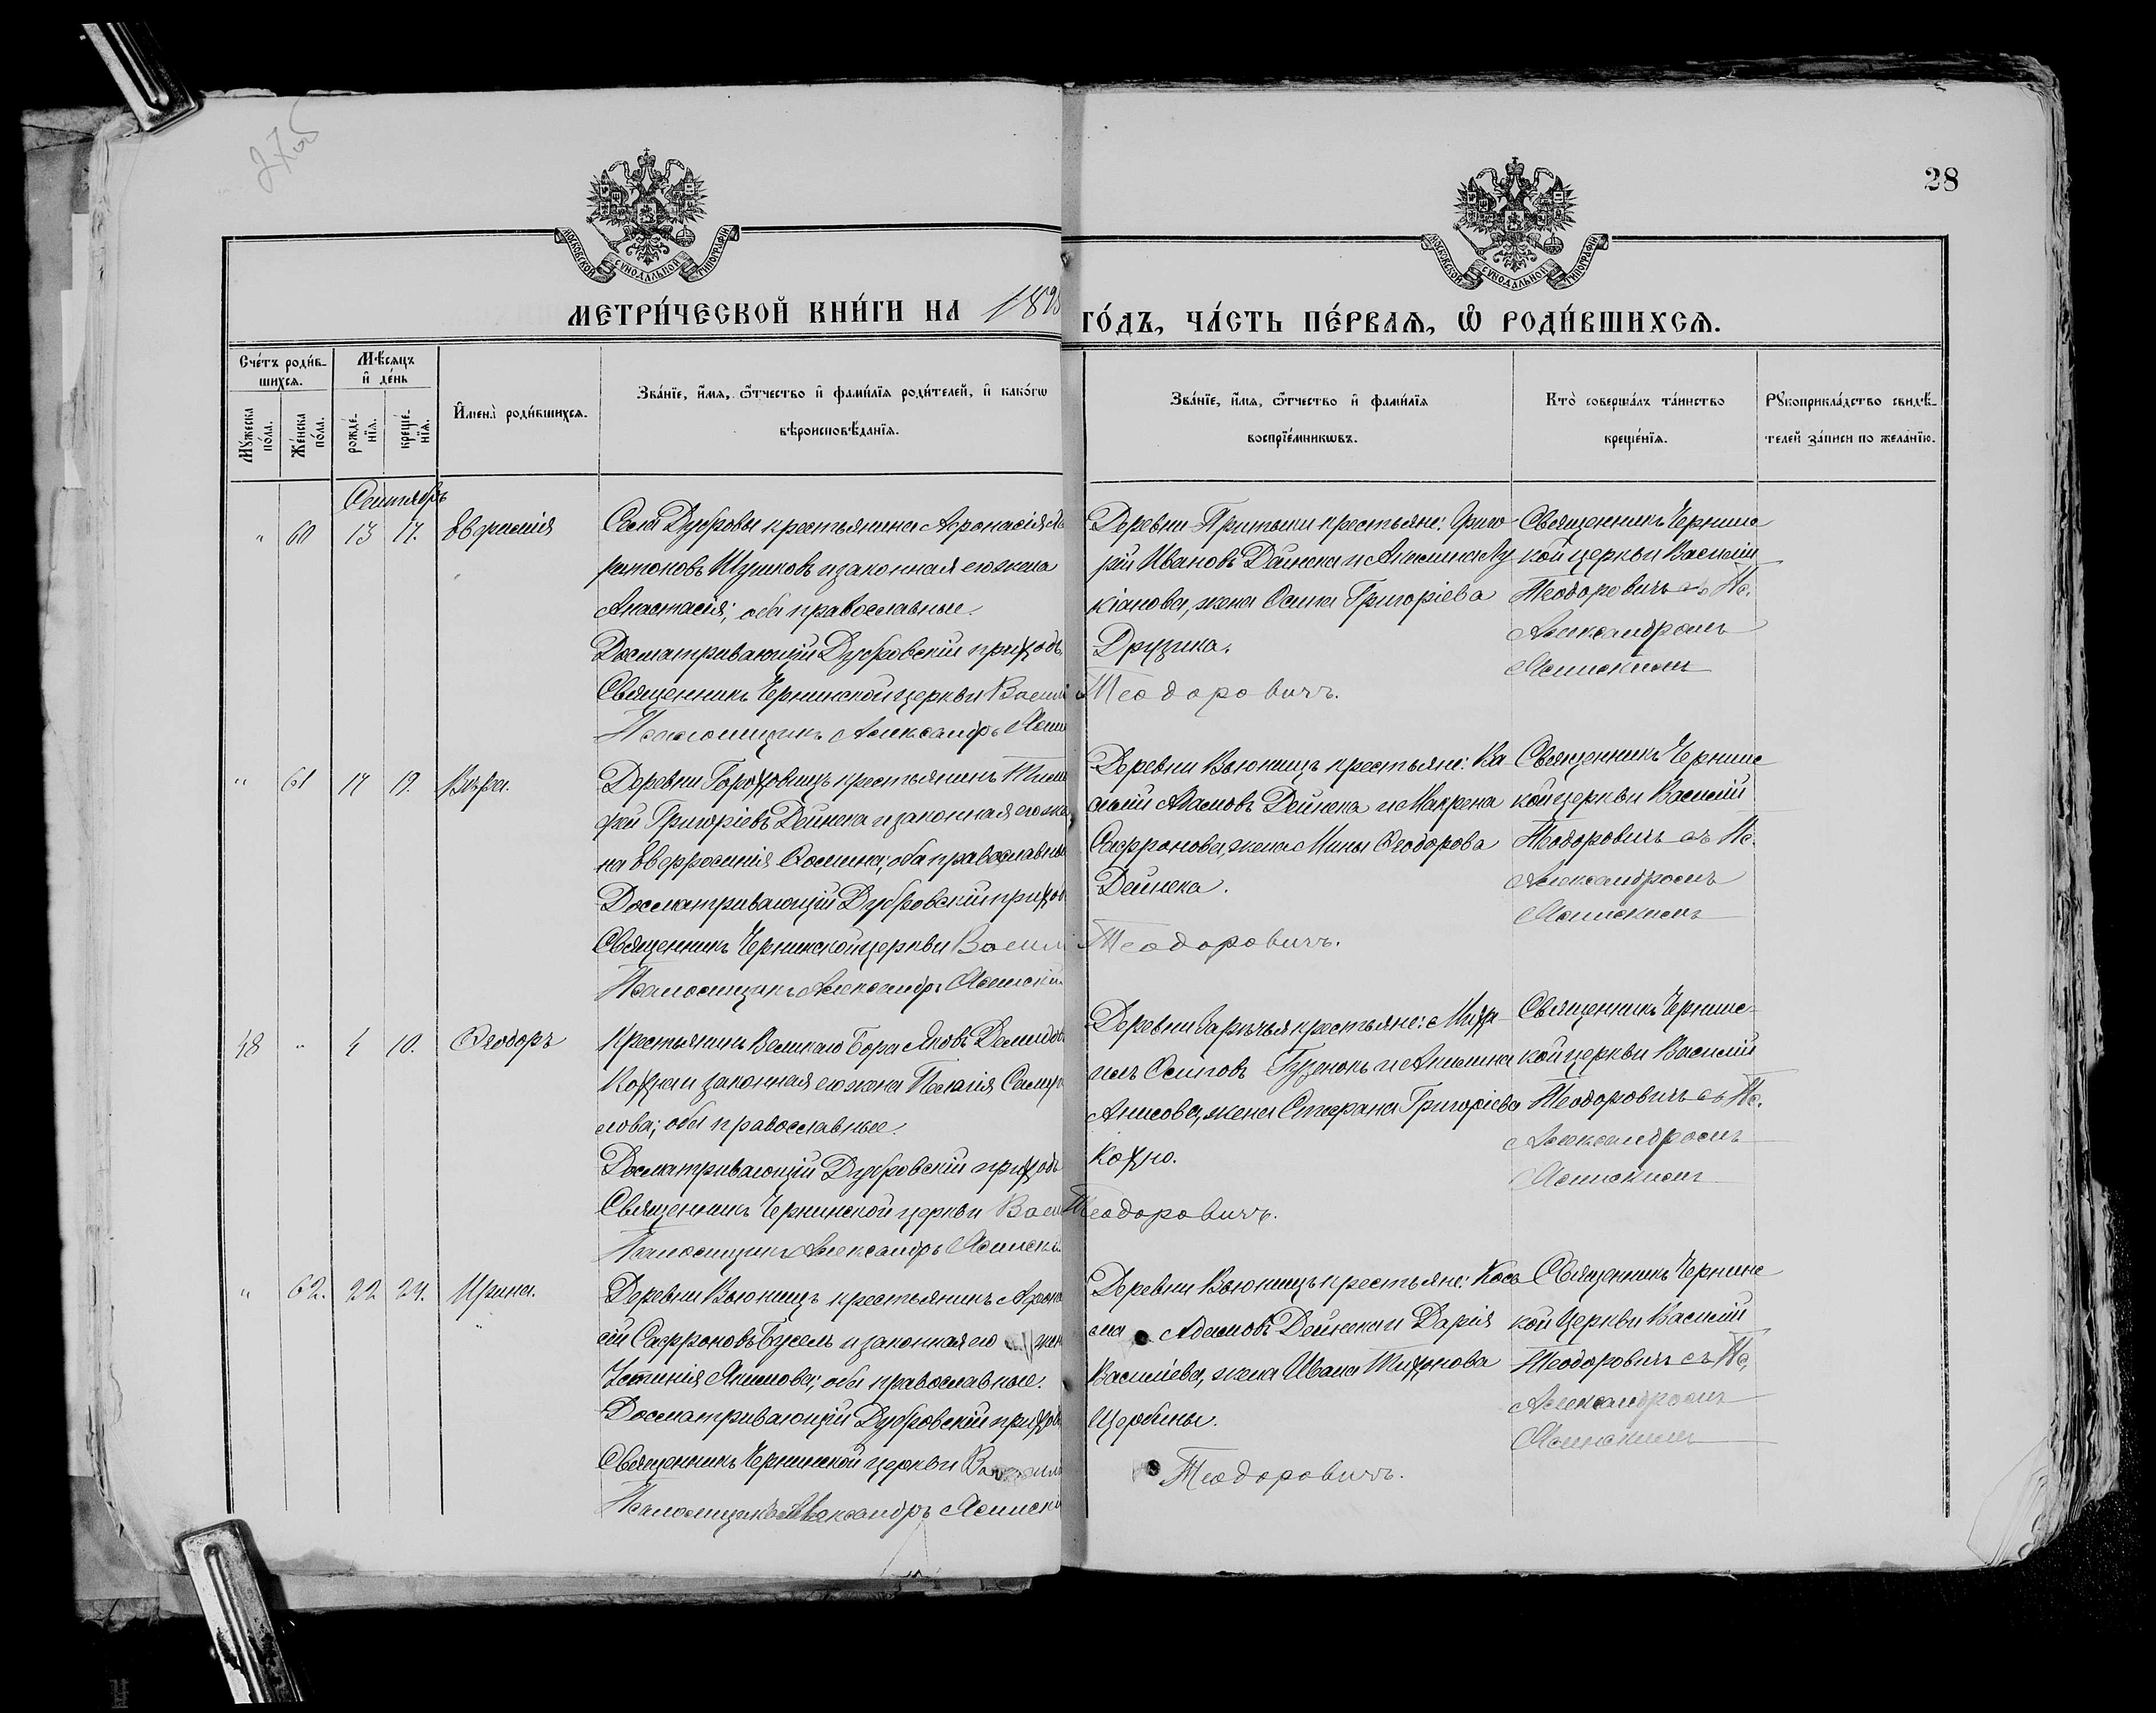 27об
28
МОСКОВСКОЙ СѴНОДАЛЬНОЙ ТИПОГРАФІИ
МОСКОВСКОЙ СѴНОДАЛЬНОЙ ТИПОГРАФІИ
МЕТРИ́ЧЕСКОЙ КНИ́ГИ НА 189
ГО́ДЪ, ЧА́СТЬ ПЕ́РВАѦ, Ѡ҆ РОДИ́ВШИХСѦ.
Сче́тъ роди́в-
шихсѧ.
Мѣ́сѧцъ
и҆ де́нь
Мꙋ́жеска по́ла.
Же́нска по́ла.
рожде́-нїѧ.
креще́-нїѧ.
И҆мена̀ роди́вшихсѧ.
Зва́нїе, и҆́мѧ, ѻ҆́тчество и҆ фами́лїѧ роди́телей, и҆ како́гѡ
вѣроисповѣ́данїѧ.
Зва́нїе, и҆́мѧ, ѻ҆́тчество и҆ фами́лїѧ
воспрїе́мникѡвъ.
Кто̀ соверша́лъ та́инство
креще́нїѧ.
Рꙋкоприкла́дство свидѣ́-
телей за́писи по жела́нїю.
Сентябрь
" 60 13 17. Евфимія
Села Дубровы крестьянина Афонасія
Шутковъ и законная его жена
Анастасія; оба православные.
Досматривающій Дубровскій приходъ
Священникъ Чернинской церкви Васил
Псаломщикъ Александръ Ясин
Деревни Притыки крестьяне: Григо
рій Ивановъ Дейнека и Акилина Лу
кіанова, жена Осипа Григоріева
Друзика.
Теодоровичъ.
Священникъ Чернинс
кой церкви Василій
Теодоровичъ съ Пс.
Александромъ
Ясинскимъ
" 61 17 19. Вѣра.
Деревни Гороховищъ крестьянинъ Тимо
фей Григоріевъ Дейнека и законная его же
на Евфросинія Фомина; оба православны
Досматривающій Дубровскій приход
Священникъ Чернинской церкви Васил
Псаломщикъ Александръ Ясински
Деревни Вьюнищъ крестьяне: Ва
силій Адамовъ Дейнека и Макрена
Сафронова, жена Мины Ѳеодорова
Дейнека.
Теодоровичъ.
Священникъ Чернинс
кой церкви Василій
Теодоровичъ съ Пс.
Александромъ
Ясинскимъ
48 " 4 10. Ѳеодоръ
Крестьянинъ Великаго Бора Яковъ Демидов
Кохно и законная его жена Пелагія Самуи
лова; оба православные.
Досматривающій Дубровскій приходъ
Священникъ Чернинской церкви Васи
Псаломщикъ Александръ Ясинскі
Деревни Зарѣчья крестьяне: Миха-
илъ Осиповъ и Акилина
Анисова, жена Стефана Григоріева
Кохно.
Теодоровичъ.
Священникъ Чернинс-
кой церкви Василій
Теодоровичъ съ Пс.
Александромъ
Ясинскимъ
" 62. 22 24. Ирина.
Деревни Вьюнищъ крестьянинъ Афона
сій Сафроновъ Бусел и законная его жен
Устинія Якимова; оба православные.
Досматривающій Дубровскій приходъ
Священникъ Чернинской церкви Васил
Псаломщикъ Александръ Ясински
Деревни Вьюнищъ крестьяне: Кось
ма Адамовъ Дейнека и Дарія
Василіева, жена Ивана Тихонова
Щербины.
Теодоровичъ.
Священникъ Чернинс
кой церкви Василій
Теодоровичъ съ Пс.
Александромъ
Ясинскимъ